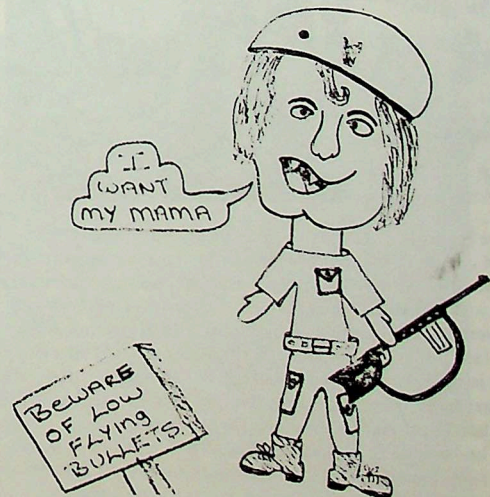 I
WANT
MY MAMA
BEWARE
OF LOW
FLYING
BULLETS